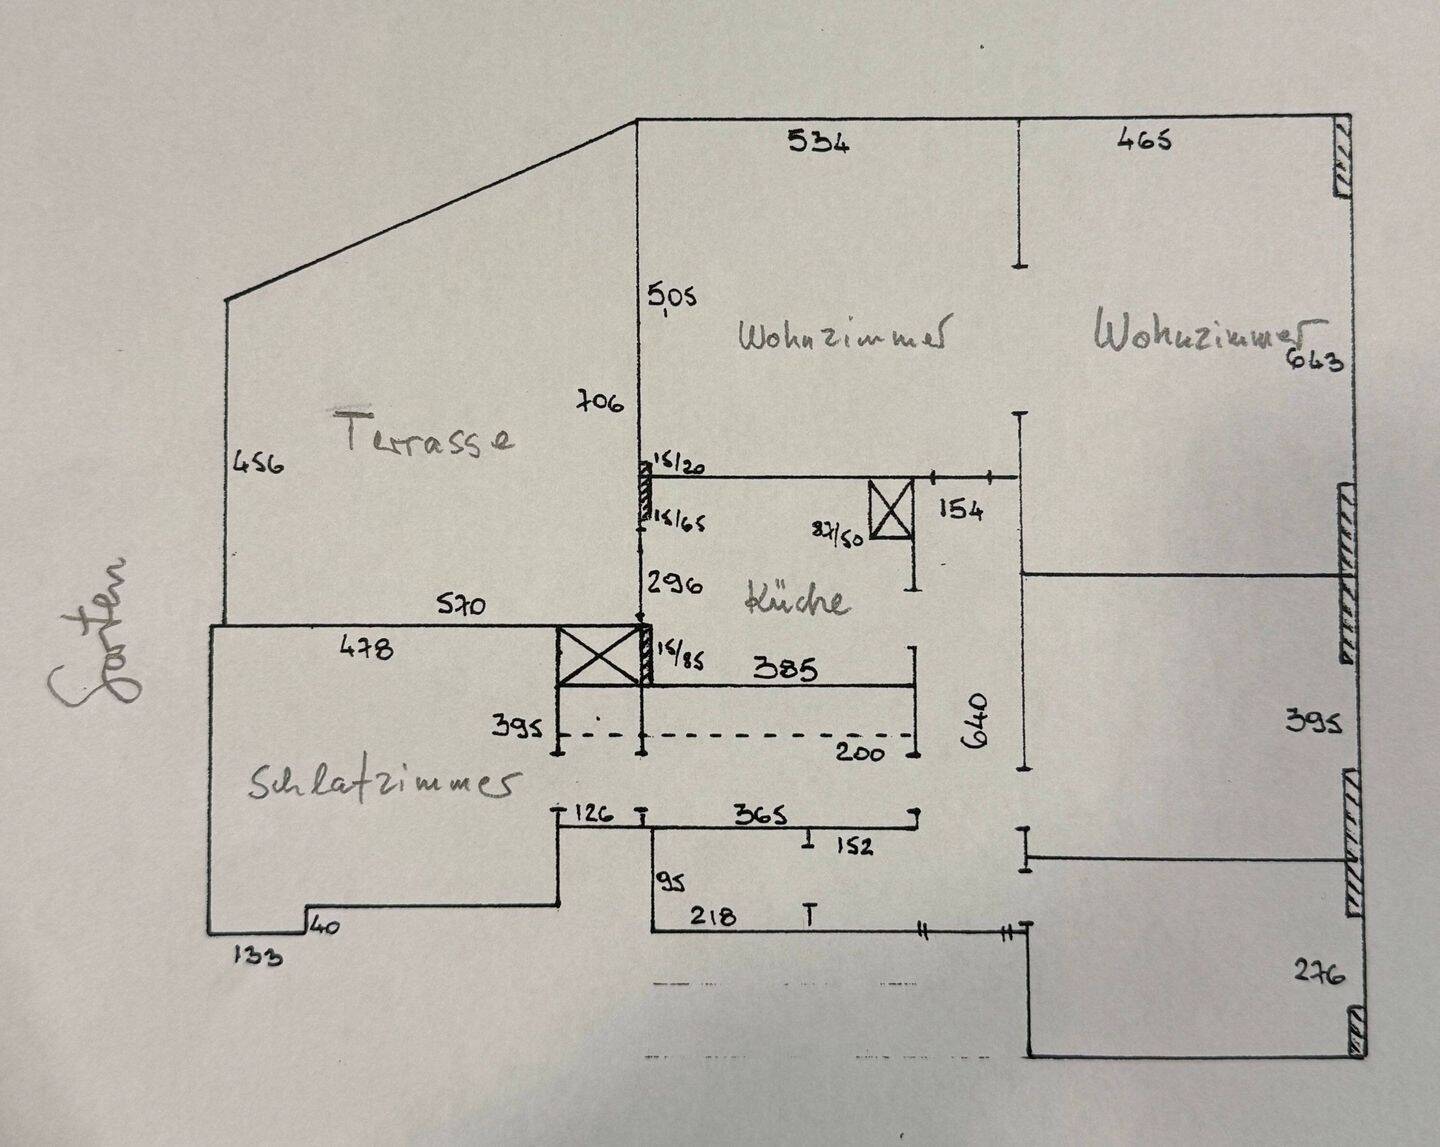 534
465
505
Wohnzimmer
Wohnzimmer
643
706
Terrasse
456
15/20
15/65
154
87/50
296
Küche
570
478
15/85
385
Garten
395
640
395
200
Schlafzimmer
126
365
152
95
218
40
133
276